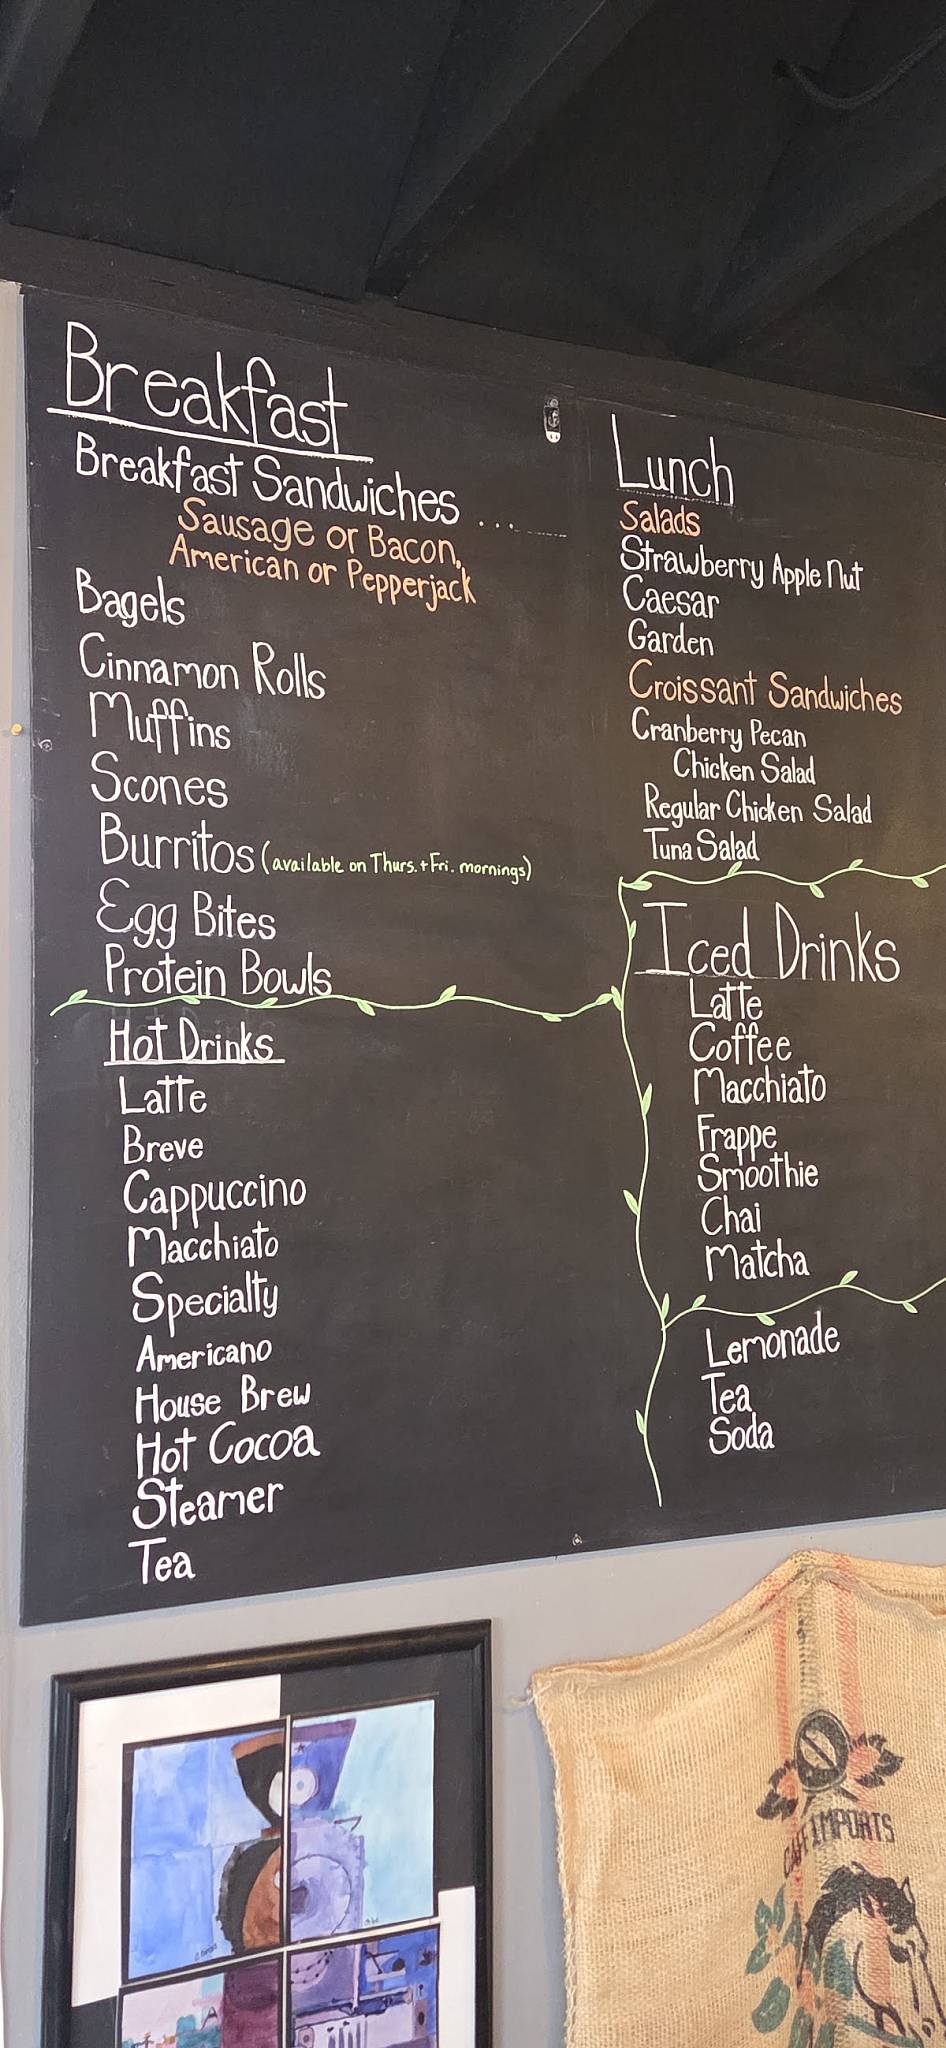 Breakfast
Breakfast Sandwiches ...
Sausage or Bacon,
American or Pepperjack
Bagels
Cinnamon Rolls
Muffins
Scones
Burritos (available on Thurs. + Fri. mornings)
Egg Bites
Protein Bowls
Hot Drinks
Latte
Breve
Cappuccino
Macchiato
Specialty
Americano
House Brew
Hot Cocoa
Steamer
Tea
Lunch
Salads
Strawberry Apple Nut
Caesar
Garden
Croissant Sandwiches
Cranberry Pecan
Chicken Salad
Regular Chicken Salad
Tuna Salad
Iced Drinks
Latte
Coffee
Macchiato
Frappe
Smoothie
Chai
Matcha
Lemonade
Tea
Soda
IMPORTS